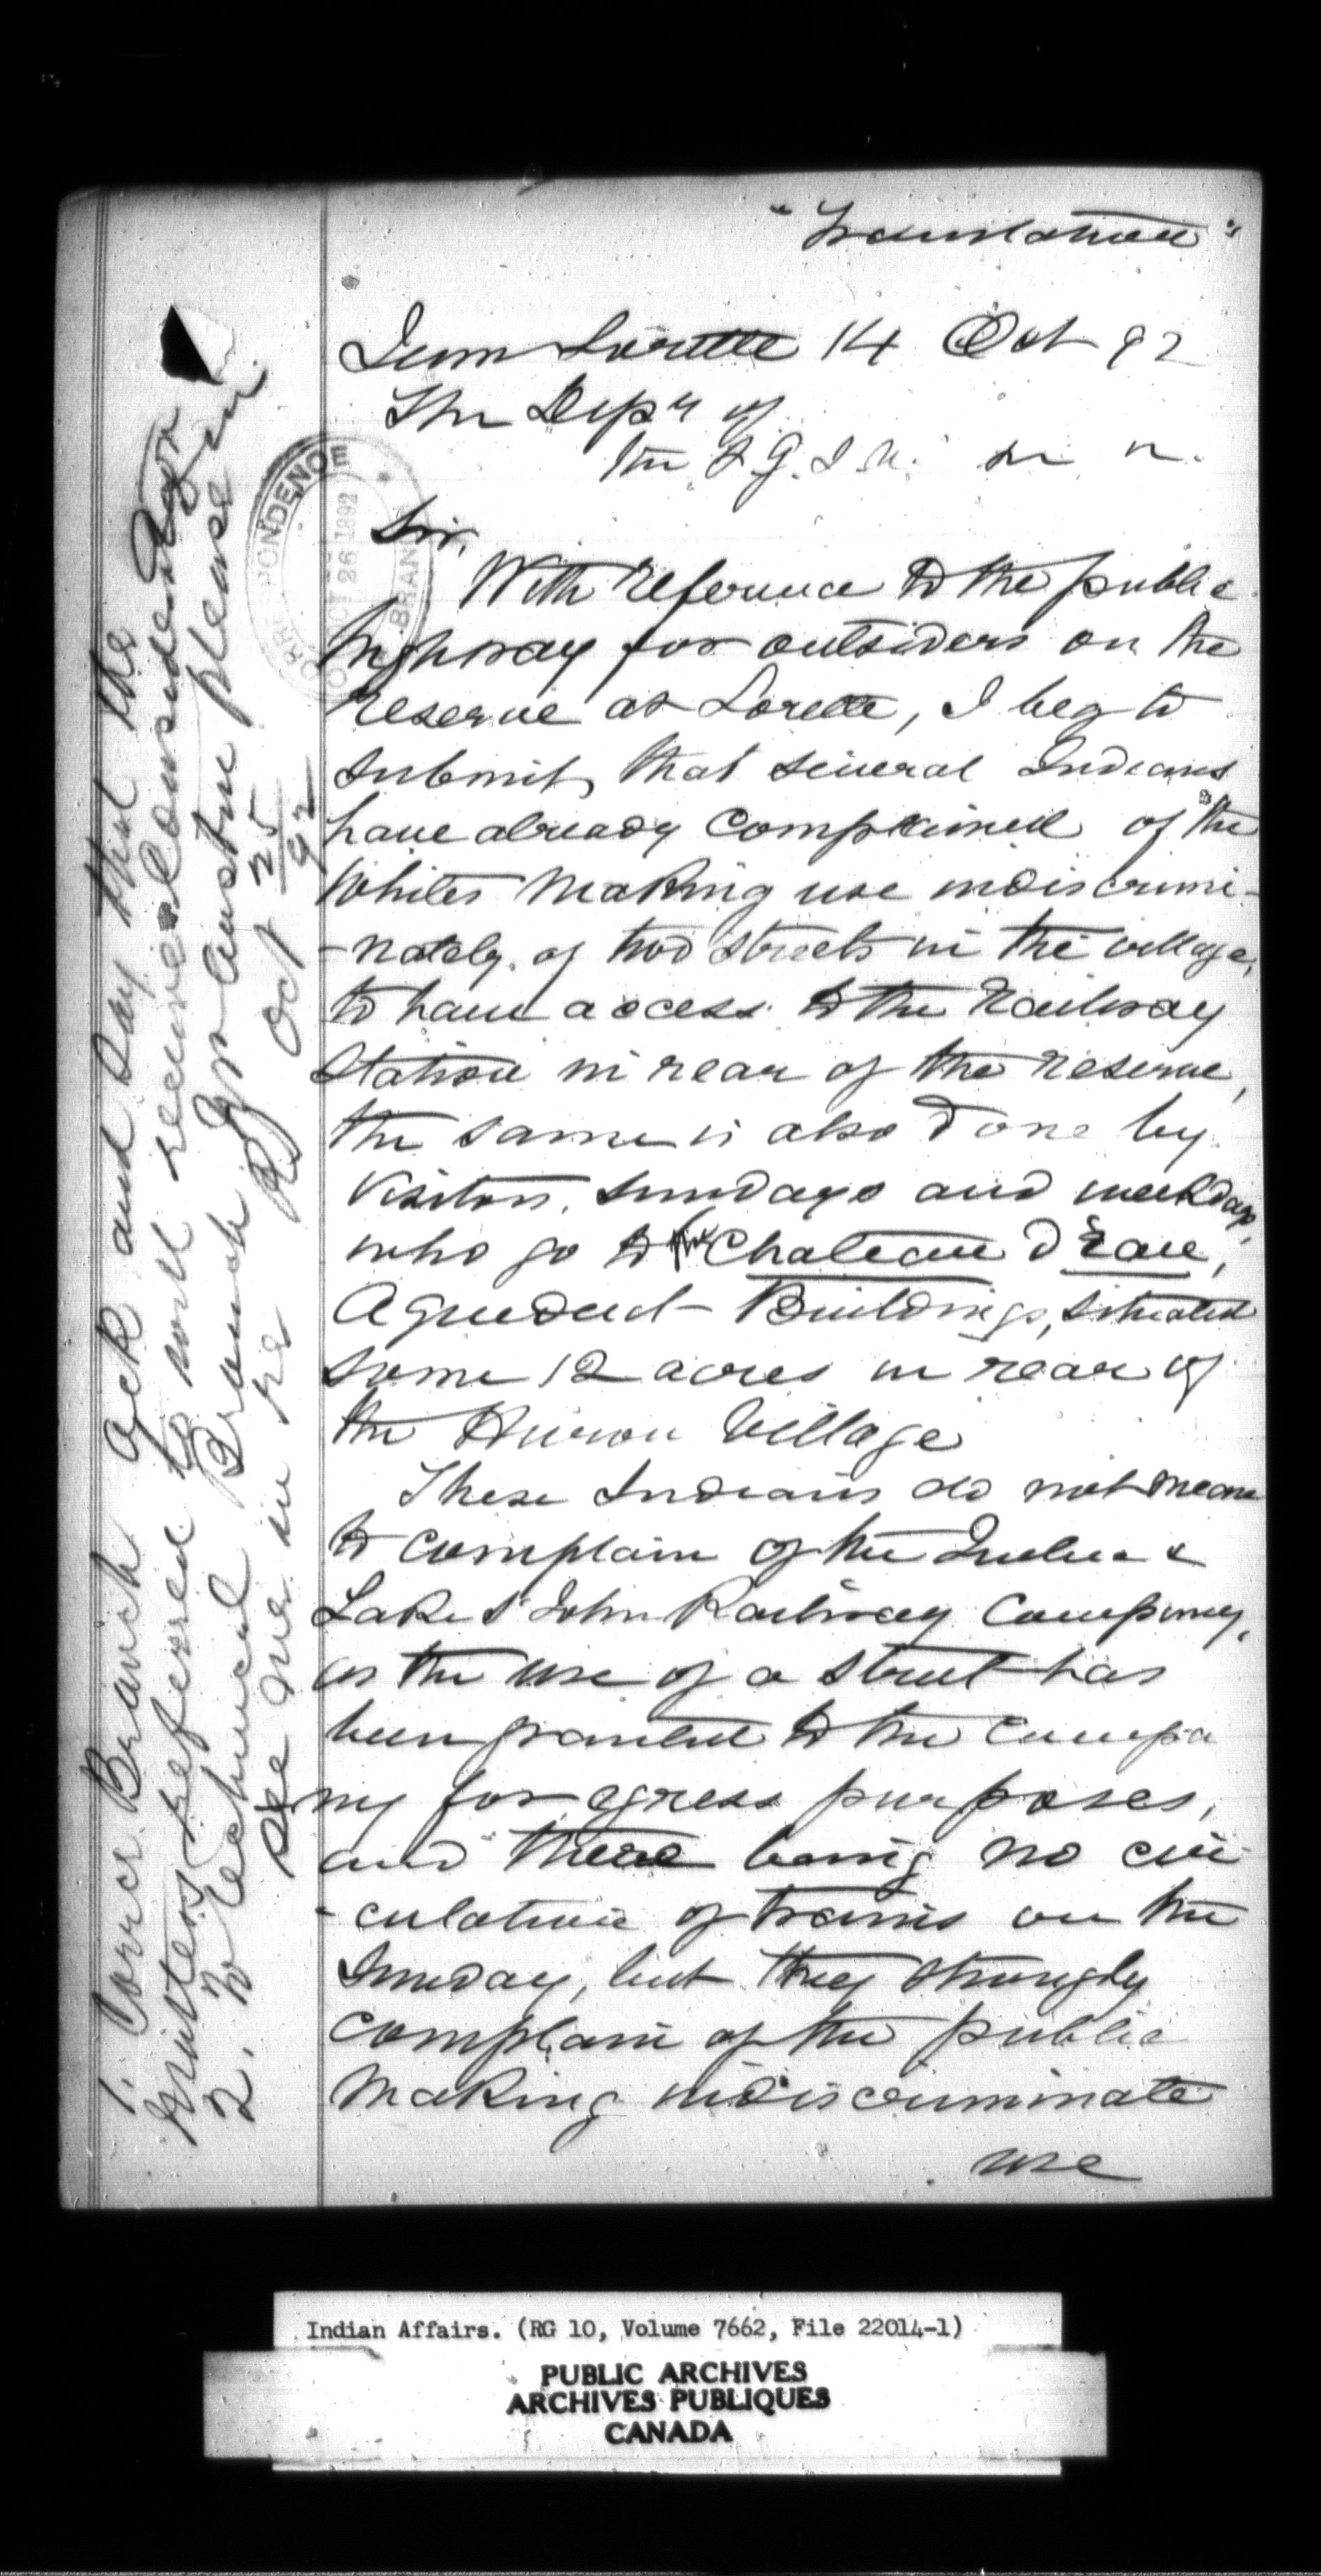 "Translation"
Jeune Lorette 14 Oct 92
The Dep'y of
the S. G. I. A.
Sir,
With reference to the public
highway for outsiders on the
reserve at Lorette, I beg to
submit, that several Indians
have already complained of the
Whites making use indiscrimi-
-nately, of two streets in the village,
to have access to the Railway
Station in rear of the reserve,
the same is also done by
visitors, Sundays and weekdays,
who go to the Chateau D'eau,
Aqueduct Buildings, situated
some 12 acres in rear of
the Huron Village
These Indians do not mean
to complain of the Quebec &
Lake St John Railway Company,
as the use of a street has
been granted to the compa
ny for egress purposes,
and there being no cir-
-culation of trains on the
Sunday, but they strongly
complain of the public
making indiscriminate
use
1. Corrce Branch ack and say that the
matters referred to will receive consideration
2. To Technical Branch Mr Austin please
see me in re
Oct 25/92
CORRESPONDENCE
OCT 26 1892
BRANCH
Indian Affairs. (RG 10, Volume 7662, File 22014-1)
PUBLIC ARCHIVES
ARCHIVES PUBLIQUES
CANADA